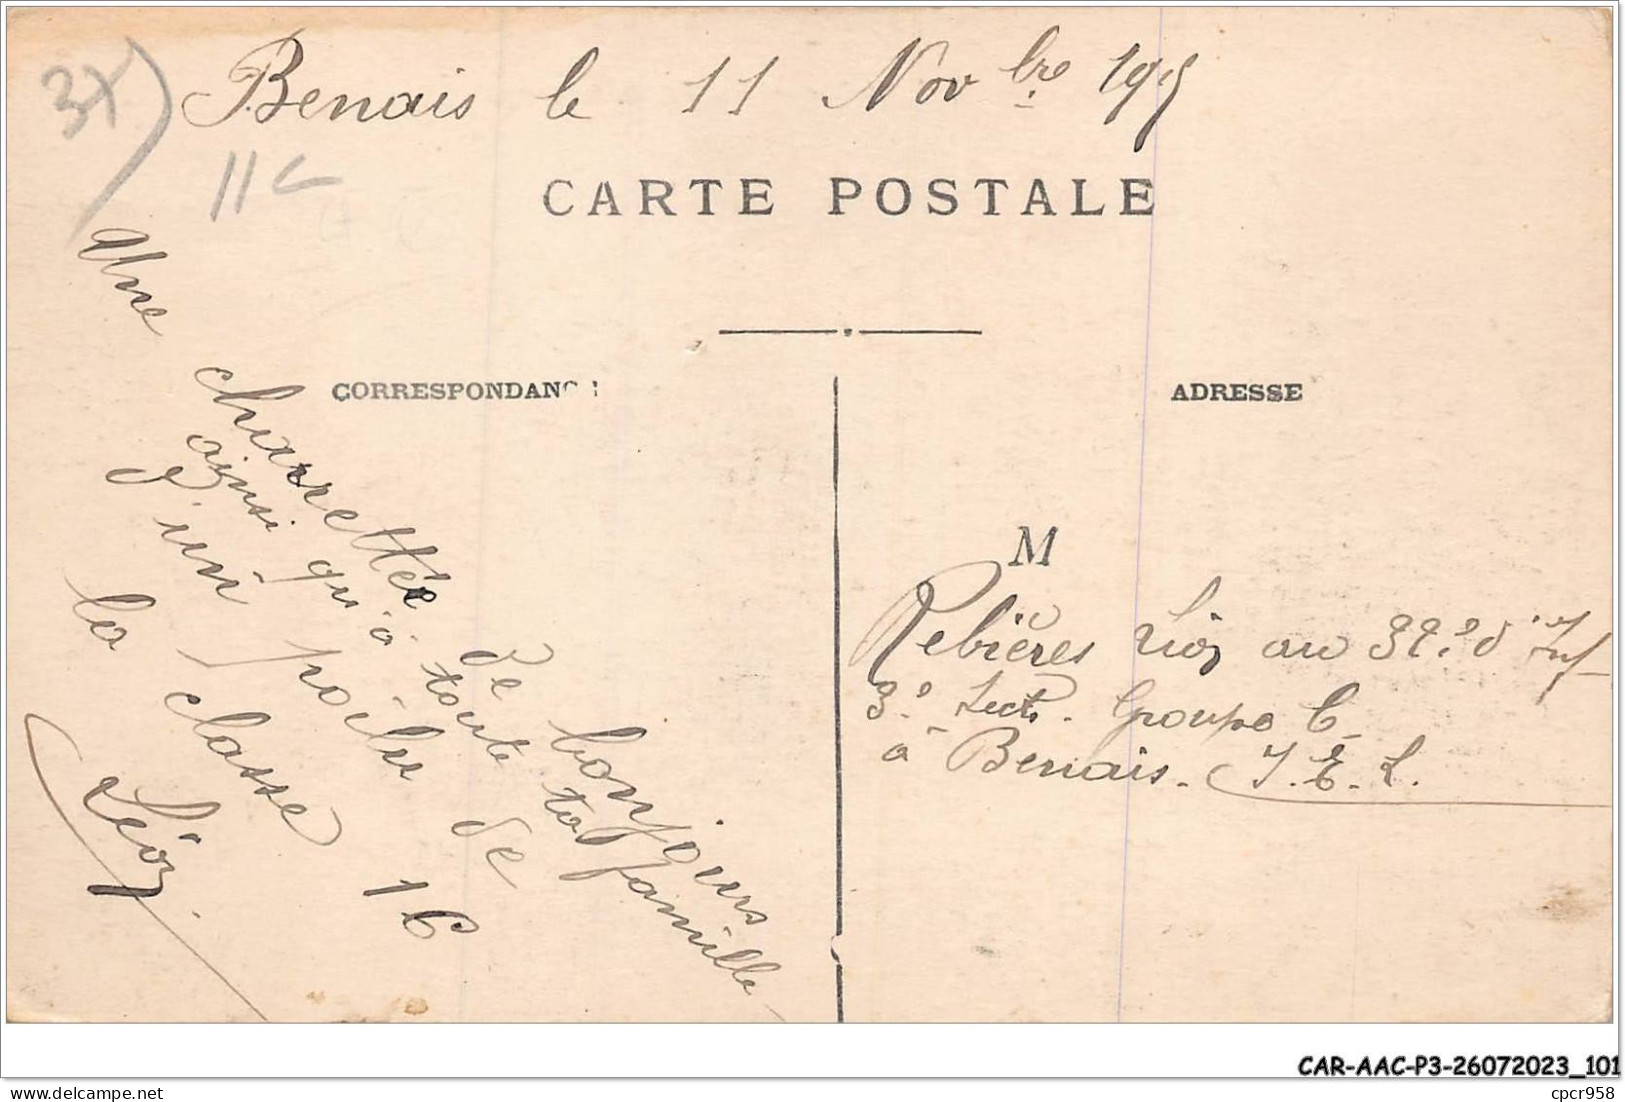 37)
Benais le 11 Nov bre 1915
11 C
CARTE POSTALE
CORRESPONDANC
ADRESSE
Une charrettée de bonjours
ainsi qu'à toute ta famille
d'un poilu de
la classe 16
Léon
M
Rebières Léon au 32e d'Inf
3e Sect. Groupe C
à Benais. I. E. L.
CAR-AAC-P3-26072023_101
delcampe.net
cpcr958